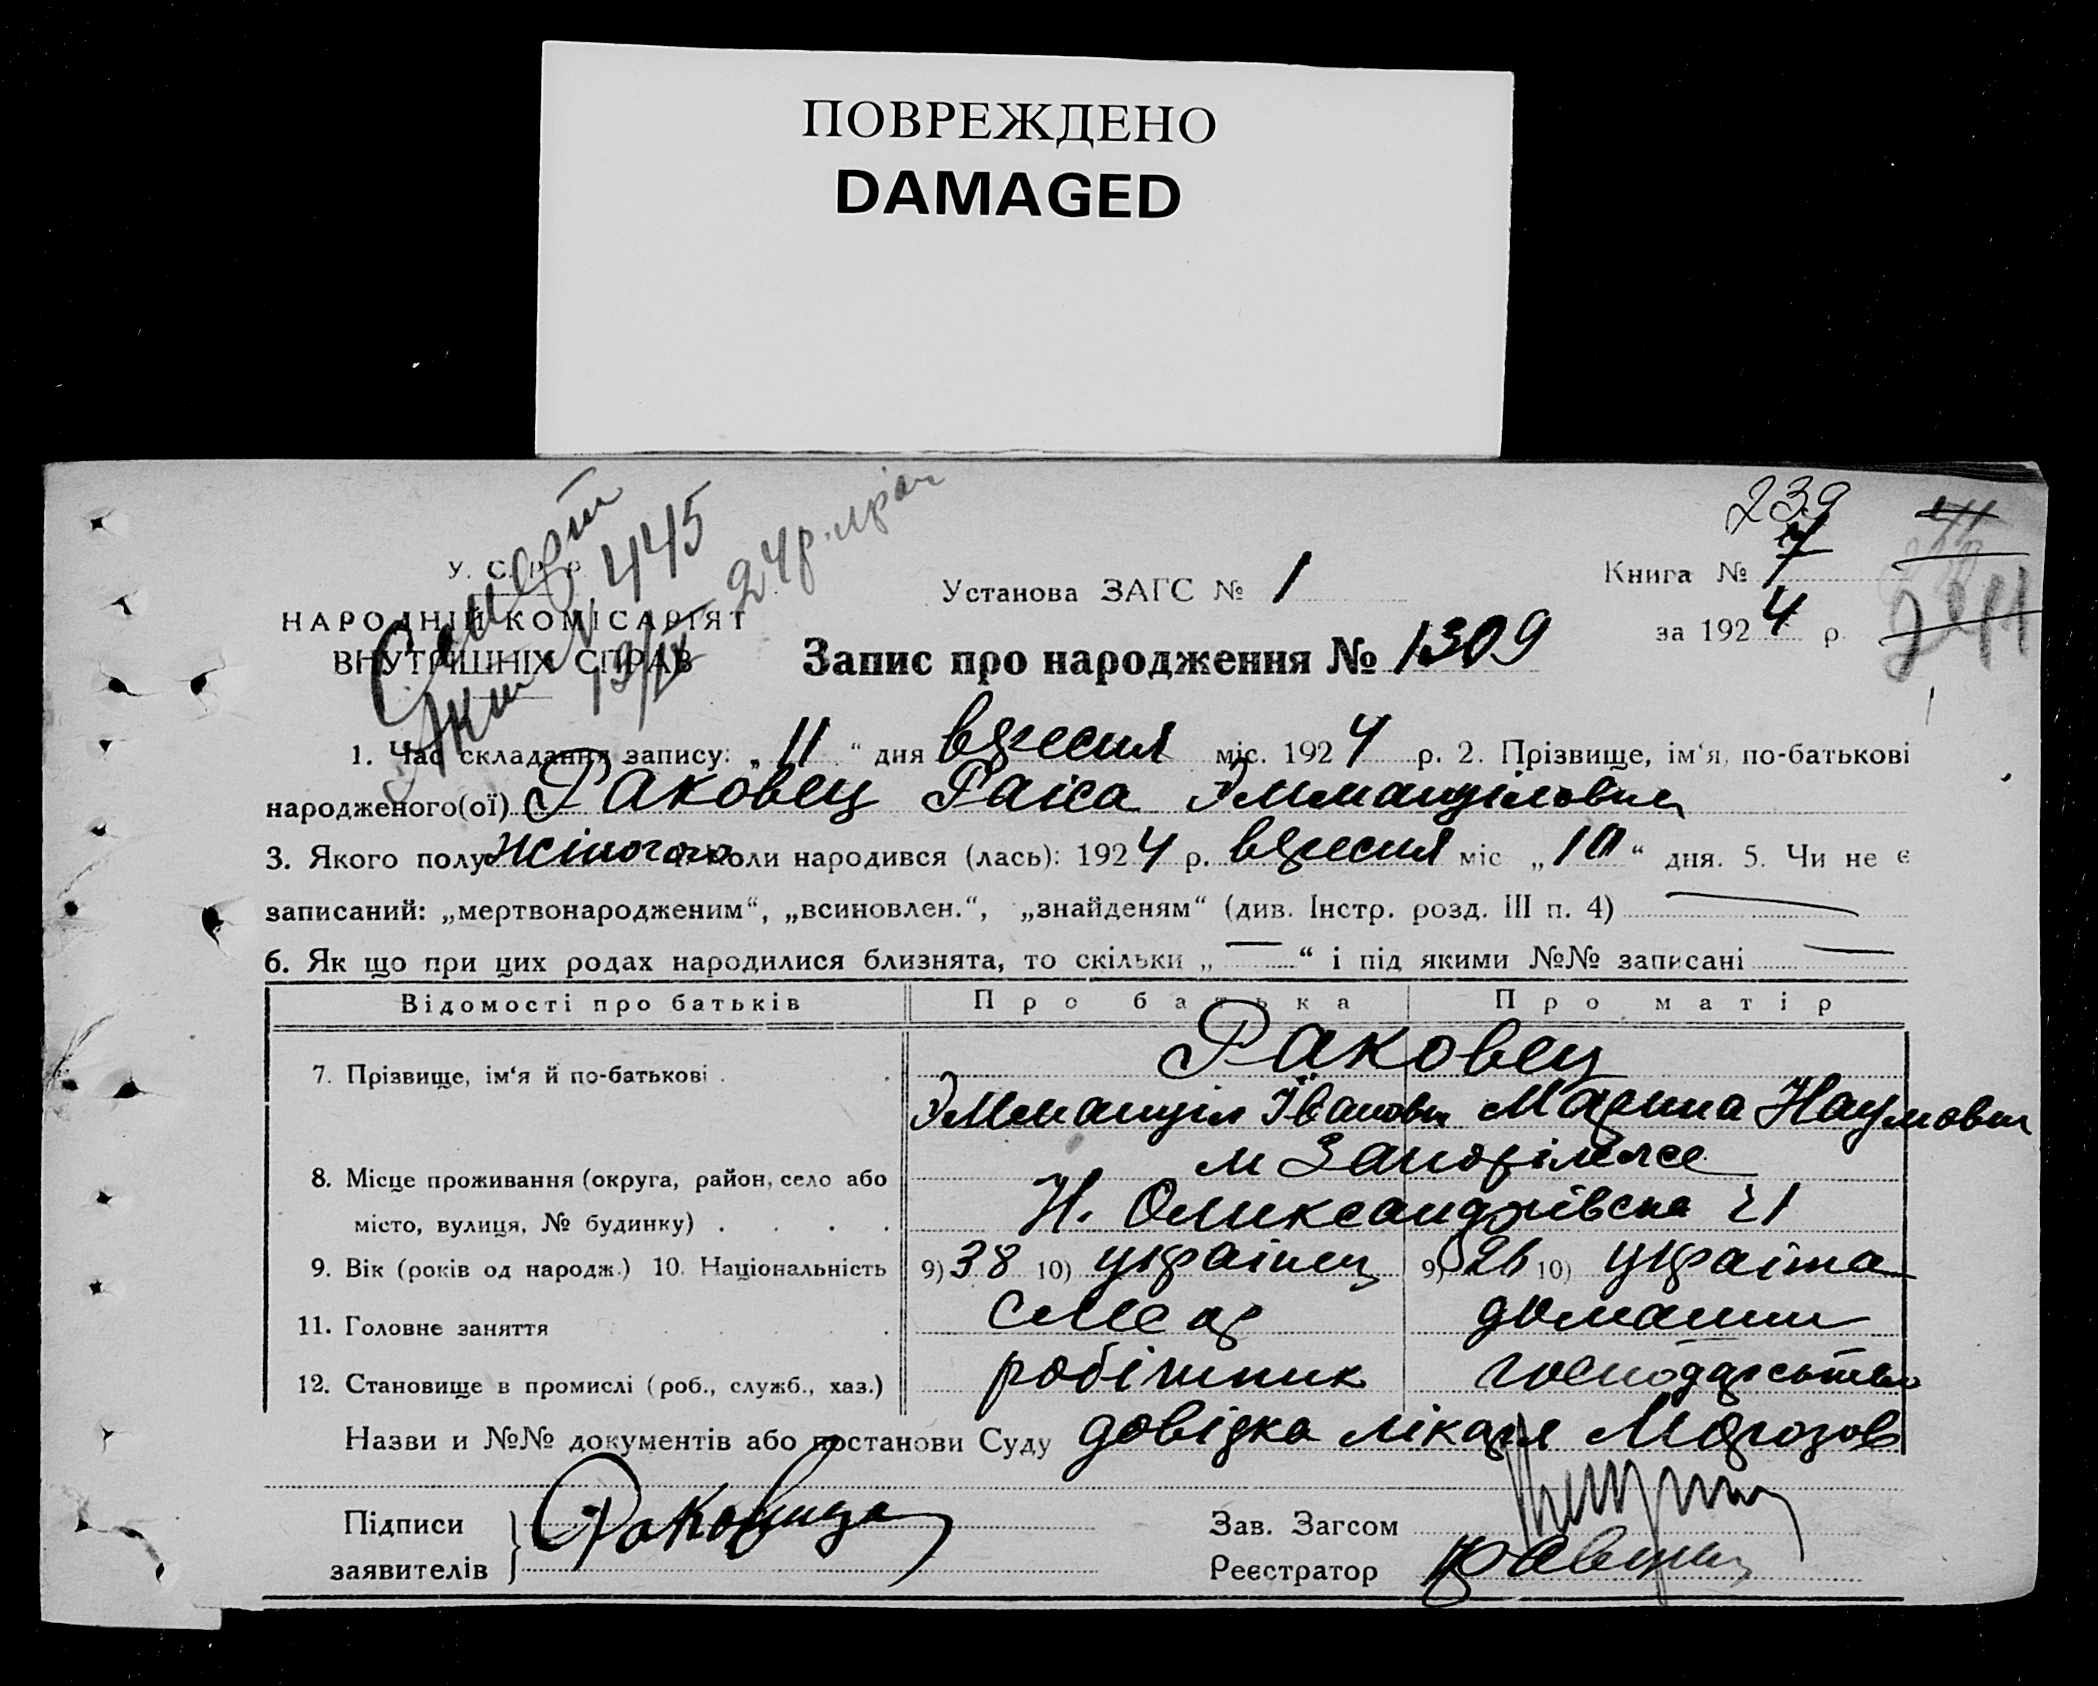 ПОВРЕЖДЕНО
DAMAGED
239
Смерт
Акт № 445
19/IX 24 р.
У. С. Р. Р.
НАРОДНІЙ КОМІСАРІЯТ
ВНУТРІШНІХ СПРАВ
Установа ЗАГС № 1
Книга № 7
за 1924 р.
241
Запис про народження № 1309
1. Час складання запису: „11“ дня вересня міс. 1924 р. 2. Прізвище, ім‘я, по-батькові
народженого(ої) Раковец Раіса Эммануіловна
3. Якого полу жіночого 4. Коли народився (лась): 1924 р. вересня міс „10“ дня. 5. Чи не є
записаний: „мертвонародженим“, „всиновлен.“, „знайденям“ (див. Інстр. розд. III п. 4) —
6. Як що при цих родах народилися близнята, то скільки „—“ і під якими №№ записані —
Відомості про батьків Про батька Про матір
7. Прізвище, ім‘я й по-батькові . Раковец
Эммануіл Іванови Марина Наумовн
8. Місце проживання (округа, район, село або м Запоріжже
місто, вулиця, № будинку) . . . . Н. Олександрівска 21
9. Вік (років од народж.) 10. Національність 9) 38 10) украінец 9) 26 10) украінка
11. Головне заняття слесар домашн
12. Становище в промислі (роб., служб., хаз.) робітник господарство
Назви и №№ документів або постанови Суду довідка лікаря Морозов
Підписи
заявителів } Раковица
Зав. Загсом
Реєстратор